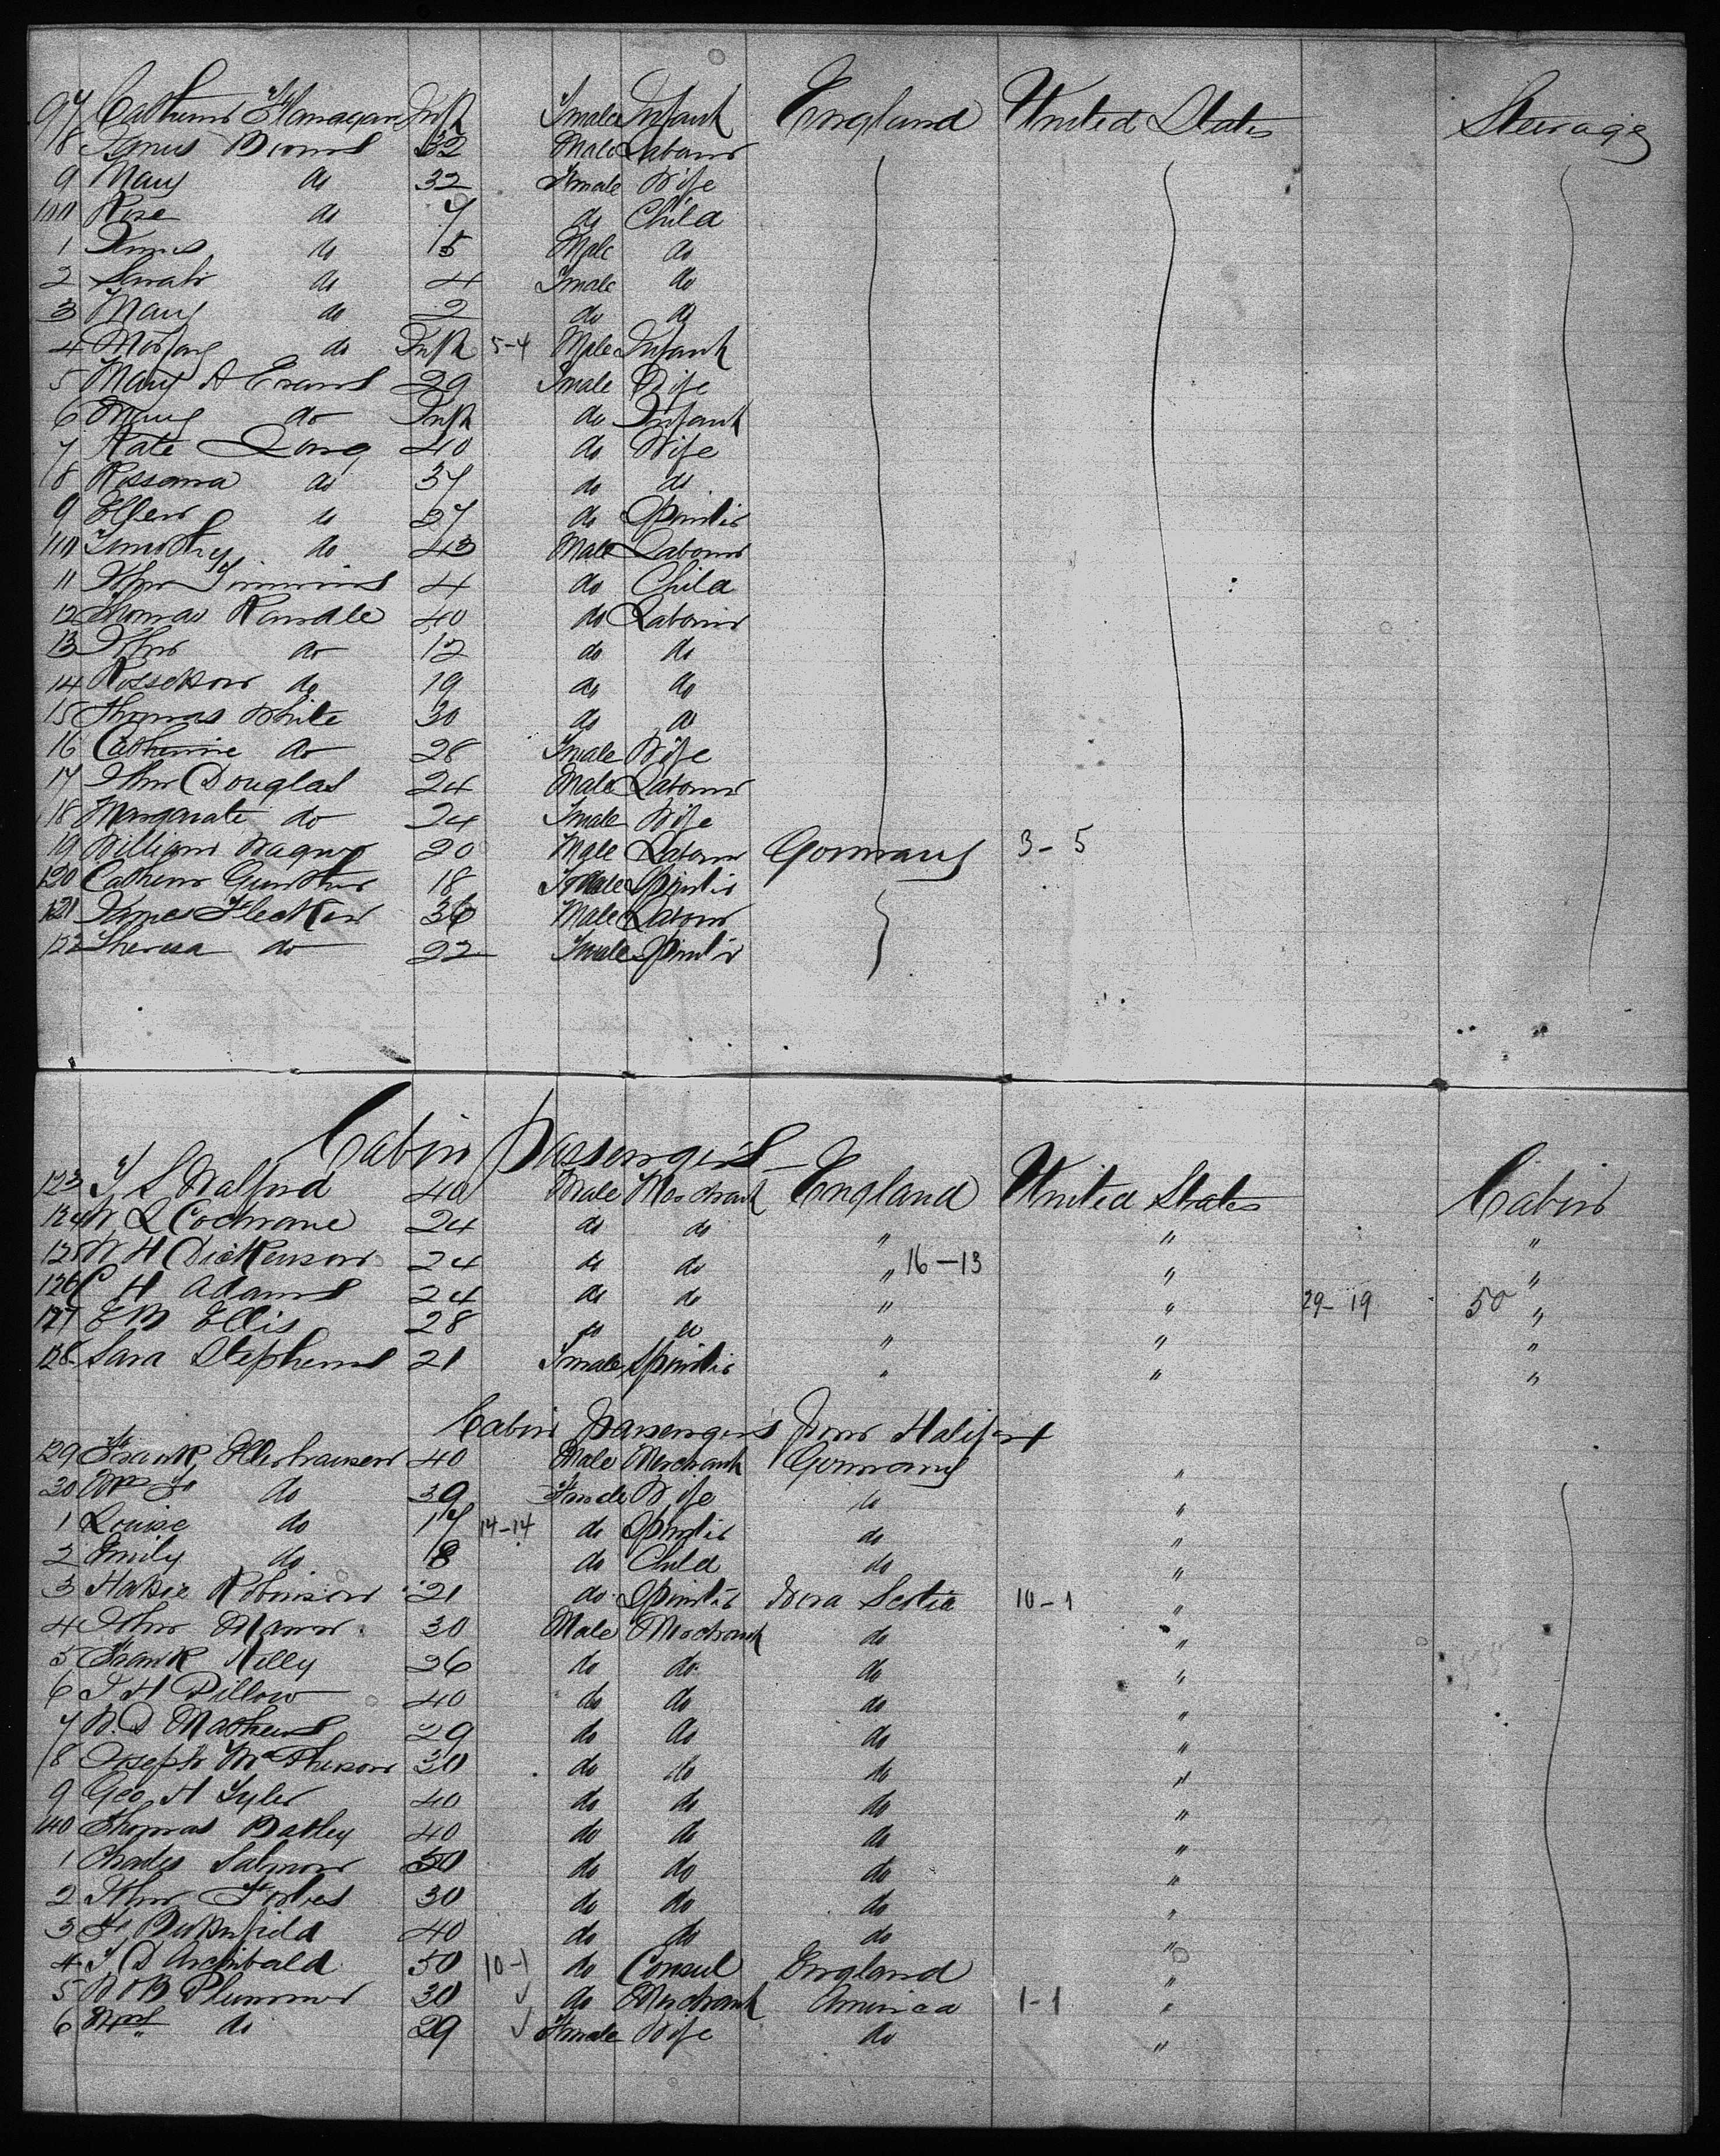 97 Catherine Flanagan Inft Female Infant England United States Steerage
8 James Burns 32 Male Labourer
9 Mary do 32 Female Wife
100 Rose do 7 do Child
1 James do 5 Male do
2 Sarah do 4 Female do
3 Mary do 2 do do
4 do Inft 5-4 Male Infant
5 Mary A Evans 29 Female Wife
6 Mary do Inft do Infant
7 Kate Long 40 do Wife
8 Rossanna do 37 do do
9 Ellen do 27 do Spinster
110 Timothy do 43 Male Labourer
11 John Timmins 4 do Child
12 Thomas 40 do Labourer
13 John do 12 do do
14 do 19 do do
15 Thomas White 30 do do
16 Catherine do 28 Female Wife
17 John Douglas 24 Male Labourer
18 Margarate do 24 Female Wife
19 William Wagner 20 Male Labourer Germany 3-5
120 Catherine Gunther 18 Female Spinster
121 James 36 Male Labourer
122 Theresa do 22 Female Spinster
Cabin Passengers
123 T S Walford 40 Male Merchant England United States Cabin
124 W L Cochrane 24 do do " " "
125 W H Dickenson 24 do do " 16-13 " "
126 C H Adams 24 do do " " 29-19 50 "
127 E B Ellis 28 do do " " "
128 Sara Stephens 21 Female Spinster " " "
Cabin Passengers from Halifax
129 Frank Ellershausen 40 Male Merchant Germany "
30 Mrs F do 39 Female Wife do "
1 Louise do 17 14-14 do Spinster do "
2 Emily do 8 do Child do "
3 Robinson 21 do Spinster Nova Scotia 10-1 "
4 John Mann 30 Male Merchant do "
5 Frank Kelly 26 do do do "
6 J H Pillow 40 do do do "
7 W. D Mathews 29 do do do "
8 Joseph 30 do do do "
9 Geo H Tyler 40 do do do "
140 Thomas Batley 40 do do do "
1 Charles Salmon 50 do do do "
2 John Forbes 30 do do do "
3 F 40 do do do "
4 T D Archibald 50 10-1 do Consul England "
5 W B Plummer 30 do Merchant America 1-1 "
6 Mrs " do 29 Female Wife do "